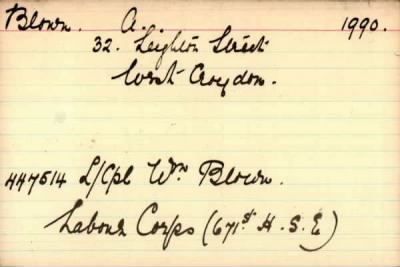 Blown. A. 1990.
32. Leighton Street
West Croydon.
447514 L/Cpl Wm Blown.
Labour Corps (671st H.S.E)